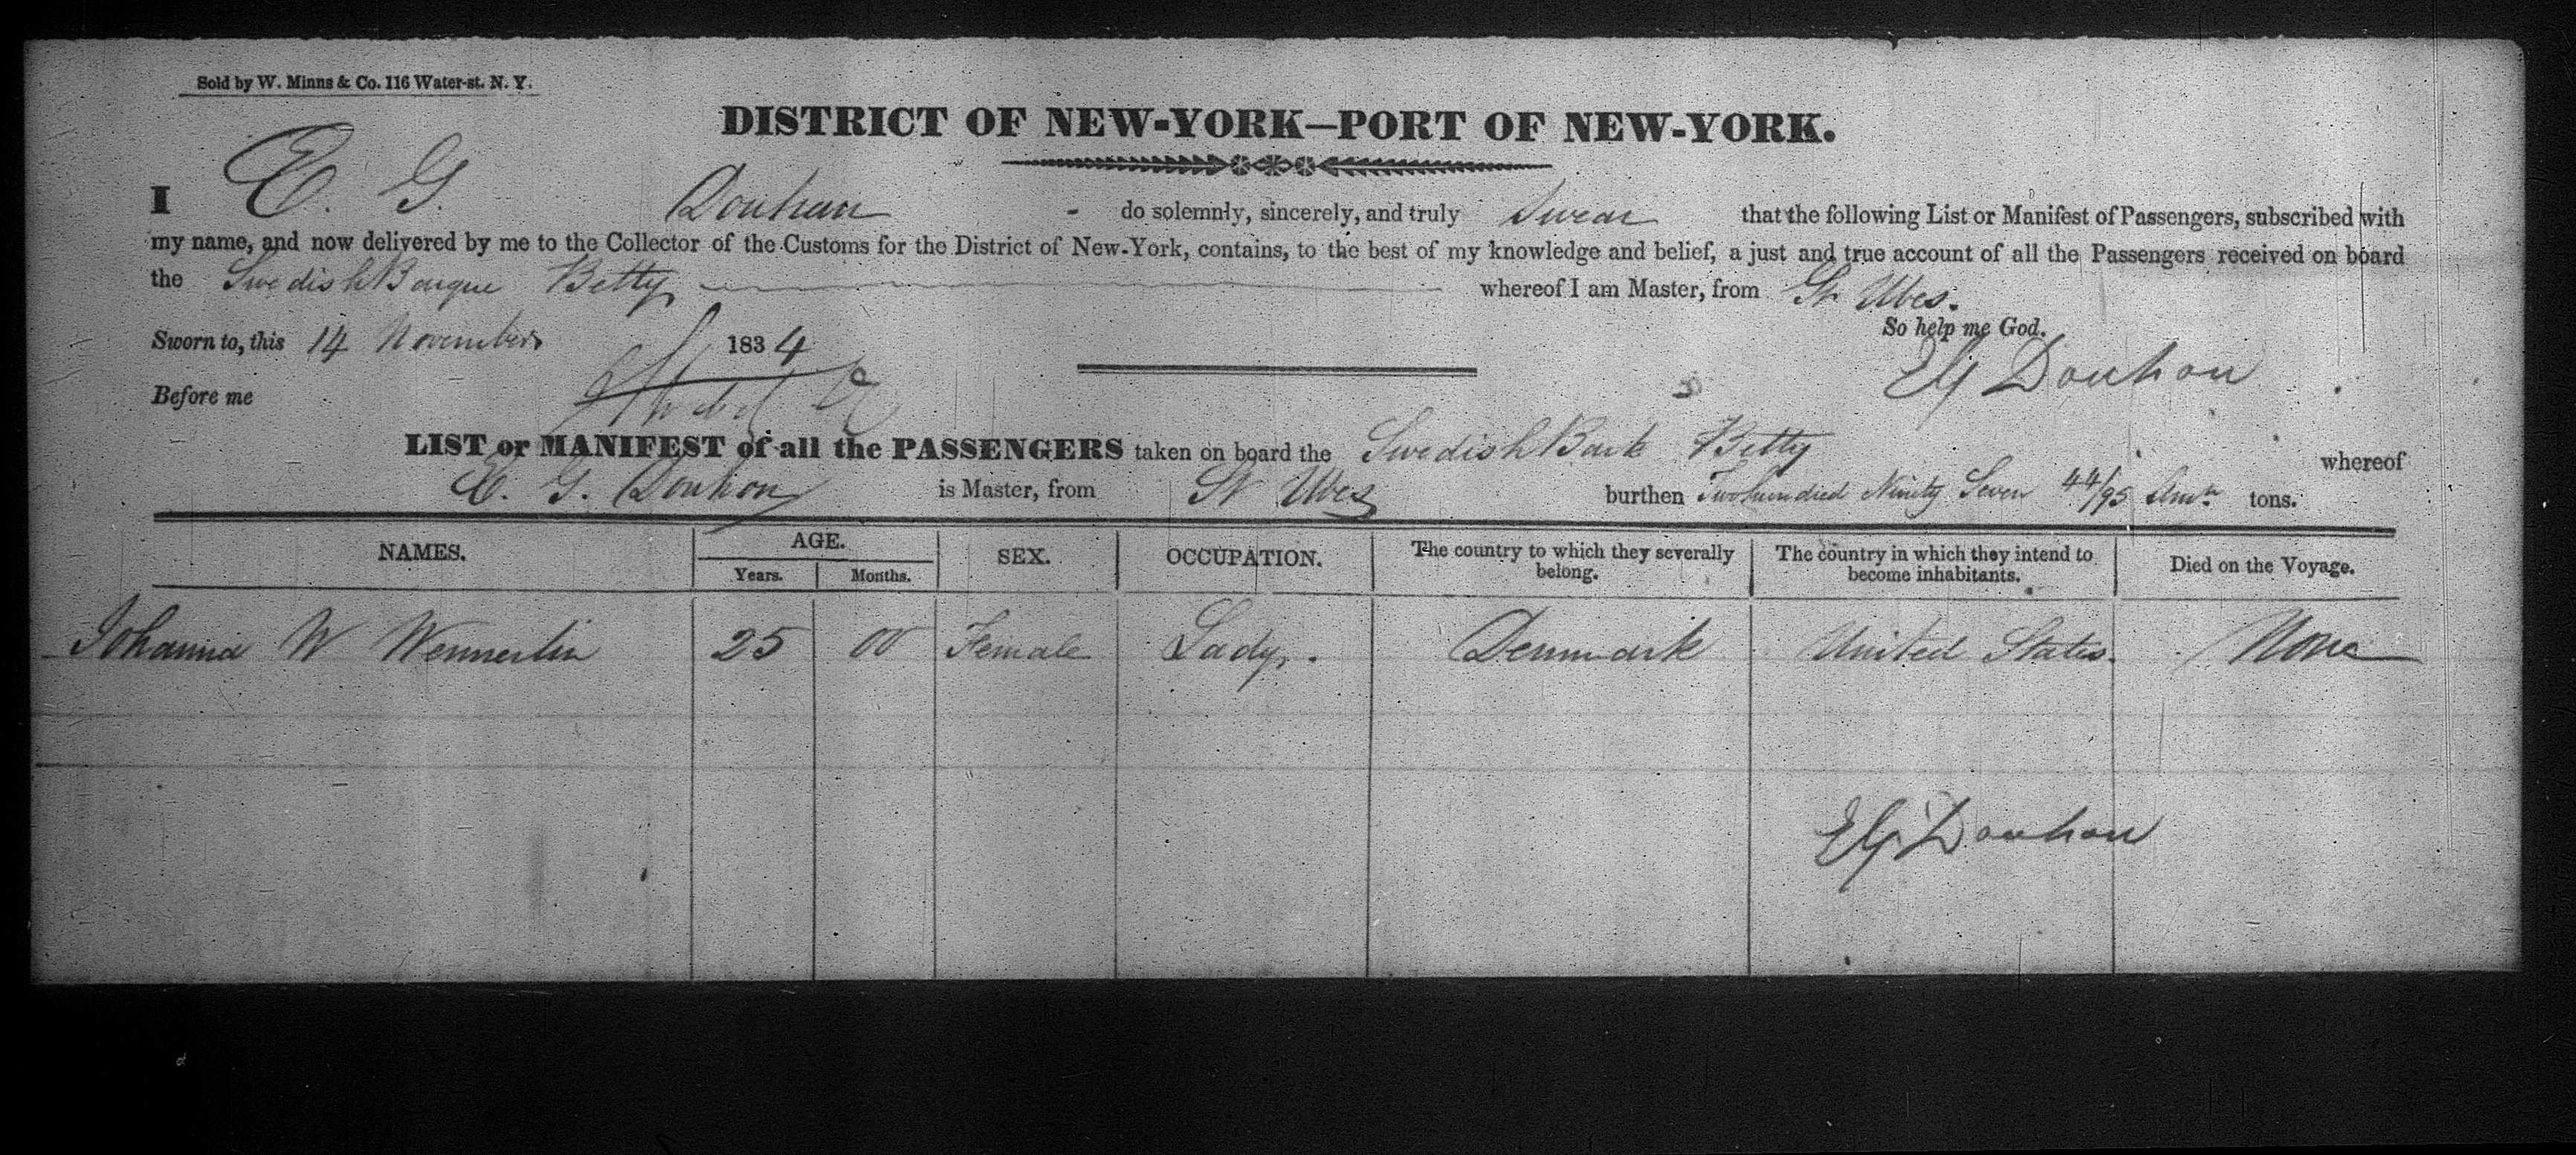 Sold by W. Minns & Co. 116 Water-st. N. Y.
DISTRICT OF NEW-YORK—PORT OF NEW-YORK.
I E. G. Douhan - do solemnly, sincerely, and truly swear that the following List or Manifest of Passengers, subscribed with
my name, and now delivered by me to the Collector of the Customs for the District of New-York, contains, to the best of my knowledge and belief, a just and true account of all the Passengers received on board
the Swedish Barque Betty whereof I am Master, from St Ubes.
So help me God.
Sworn to, this 14 November 1834
EG Douhan
Before me
LIST or MANIFEST of all the PASSENGERS taken on board the Swedish Bark Betty whereof
E. G. Douhan is Master, from St Ubes burthen Two hundred Ninety Seven 44/95 Amn tons.
NAMES. AGE. SEX. OCCUPATION. The country to which they severally belong. The country in which they intend to become inhabitants. Died on the Voyage.
Years. Months.
Johanna W Wennerlin 25 00 Female Lady. Denmark United States. None
EG Douhan